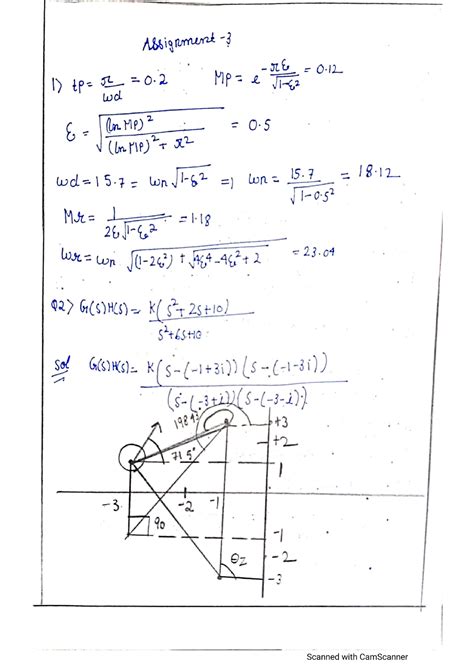 Assignment-3
1) tp = π/ωd = 0.2    Mp = e^(-πξ/√(1-ξ²)) = 0.12
ξ = √((ln Mp)²/((ln Mp)² + π²)) = 0.5
ωd = 15.7 = ωn√(1-ξ²) =) ωn = 15.7/√(1-0.5²) = 18.12
Mr = 1/(2ξ√(1-ξ²)) = 1.18
ωr = ωn √((1-2ξ²) + √(4ξ⁴-4ξ²+2)) = 23.04
Q2> G(s)H(s) = K(s²+2s+10)/(s²+6s+10)
Sol G(s)H(s) = K(s-(-1+3i))(s-(-1-3i))/((s-(-3+i))(s-(-3-i))
+3
+2
71.5°
1
-3 -2 -1
90
-1
θz
-2
-3
Scanned with CamScanner